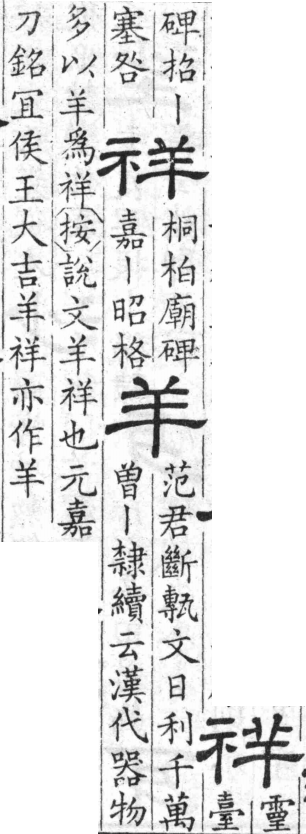 祥
靈
臺
碑招丨
塞咎
祥
桐柏廟碑
嘉丨昭格
羊
范君斷甎文日利千萬
曾丨隸續云漢代器物
多以羊爲祥按說文羊祥也元嘉
刀銘冝侯王大吉羊祥亦作羊